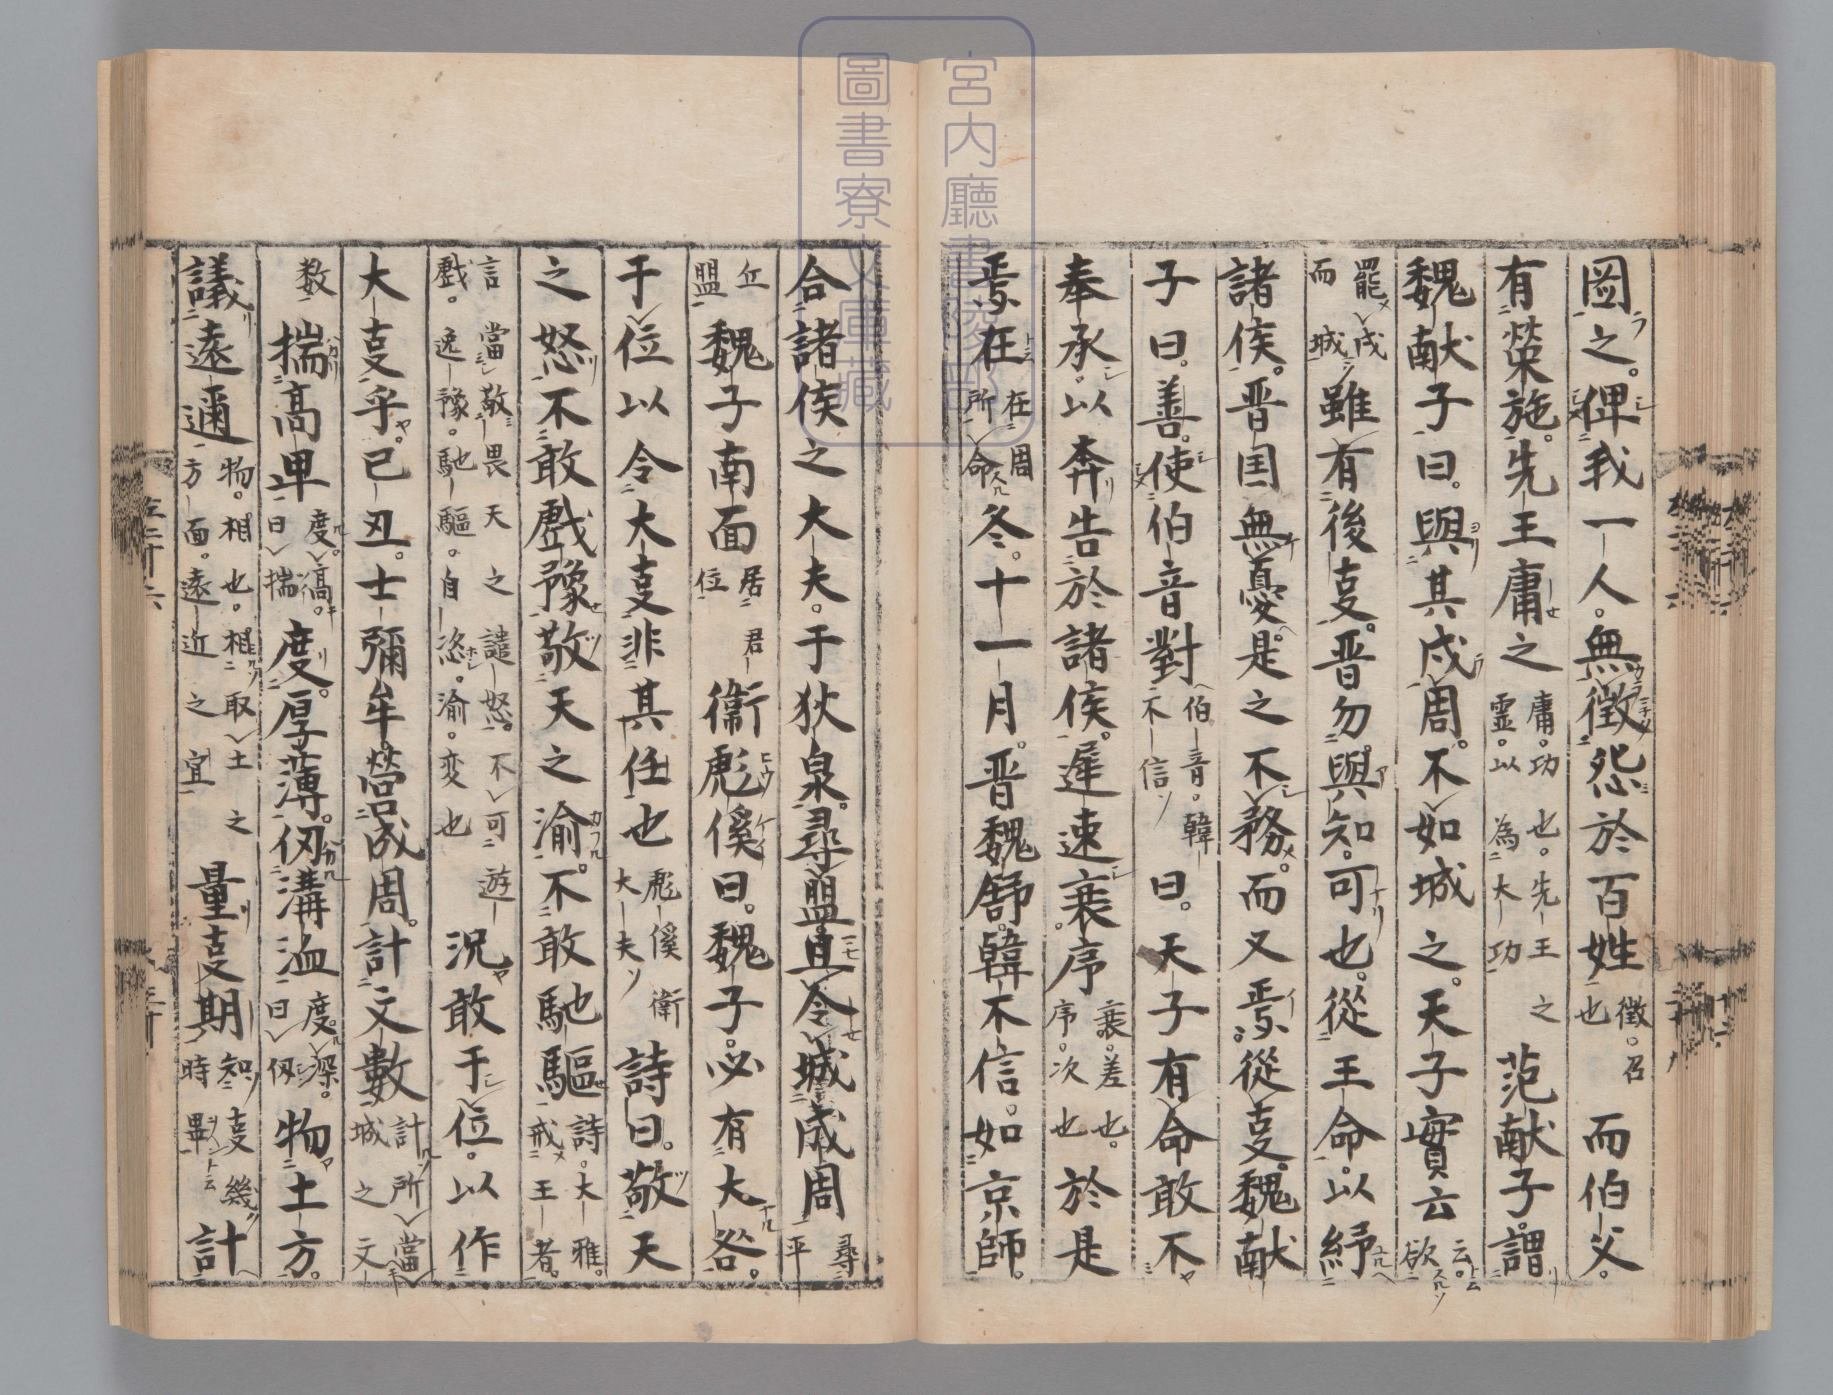 啚之。俾我一人。無徵怨於百姓徵。召也而伯父。
有榮施。先王庸之庸。功也。先王之靈。以為大功范献子謂
魏献子曰。與其戍周。不如城之。天子實云云。欲
罷戍而城雖有後㕝。晋勿與知。可也。從王命。以紓
諸侯。晋囯無憂。是之不務。而又焉。從㕝。魏献
子曰。善。使伯音對伯音。韓不信曰。天子有命敢不
奉承。以奔告於諸侯。遲速衰序衰。差也。序。次也於是
焉在在周所命冬。十一月。晋魏舒。韓不信。如京師。
合諸侯之大夫。于狄泉。尋盟。且令城成周尋平
丘盟魏子南面居君位衞彪傒曰。魏子。必有大咎。
干位以令大㕝非其任也彪傒衛大夫詩曰。敬天
之怒不敢戲豫。敬天之渝。不敢馳驅詩。大雅。戒王者。
言當敬畏天之譴怒。不可遊戲。逸豫。馳驅。自恣。渝。変也況敢干位。以作
大㕝乎。己丑。士彌牟營成周。計丈數計所當城之丈
数揣高卑度高。曰揣度厚薄。仭溝洫度深。曰仭物土方。
議遠邇物。相也。相取土之方面。遠近之宜量㕝期知㕝幾時畢計
五三十六
宮内廳書陵部
圖書寮文庫藏